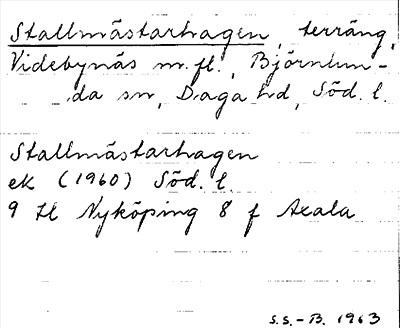 Stallmästarhagen, terräng,
Videbynäs m. fl., Björnlun-
da sn, Daga hd, Söd. l.
Stallmästarhagen
ek (1960) Söd. l.
9 H Nyköping 8 f Axala
S.S.-B. 1963